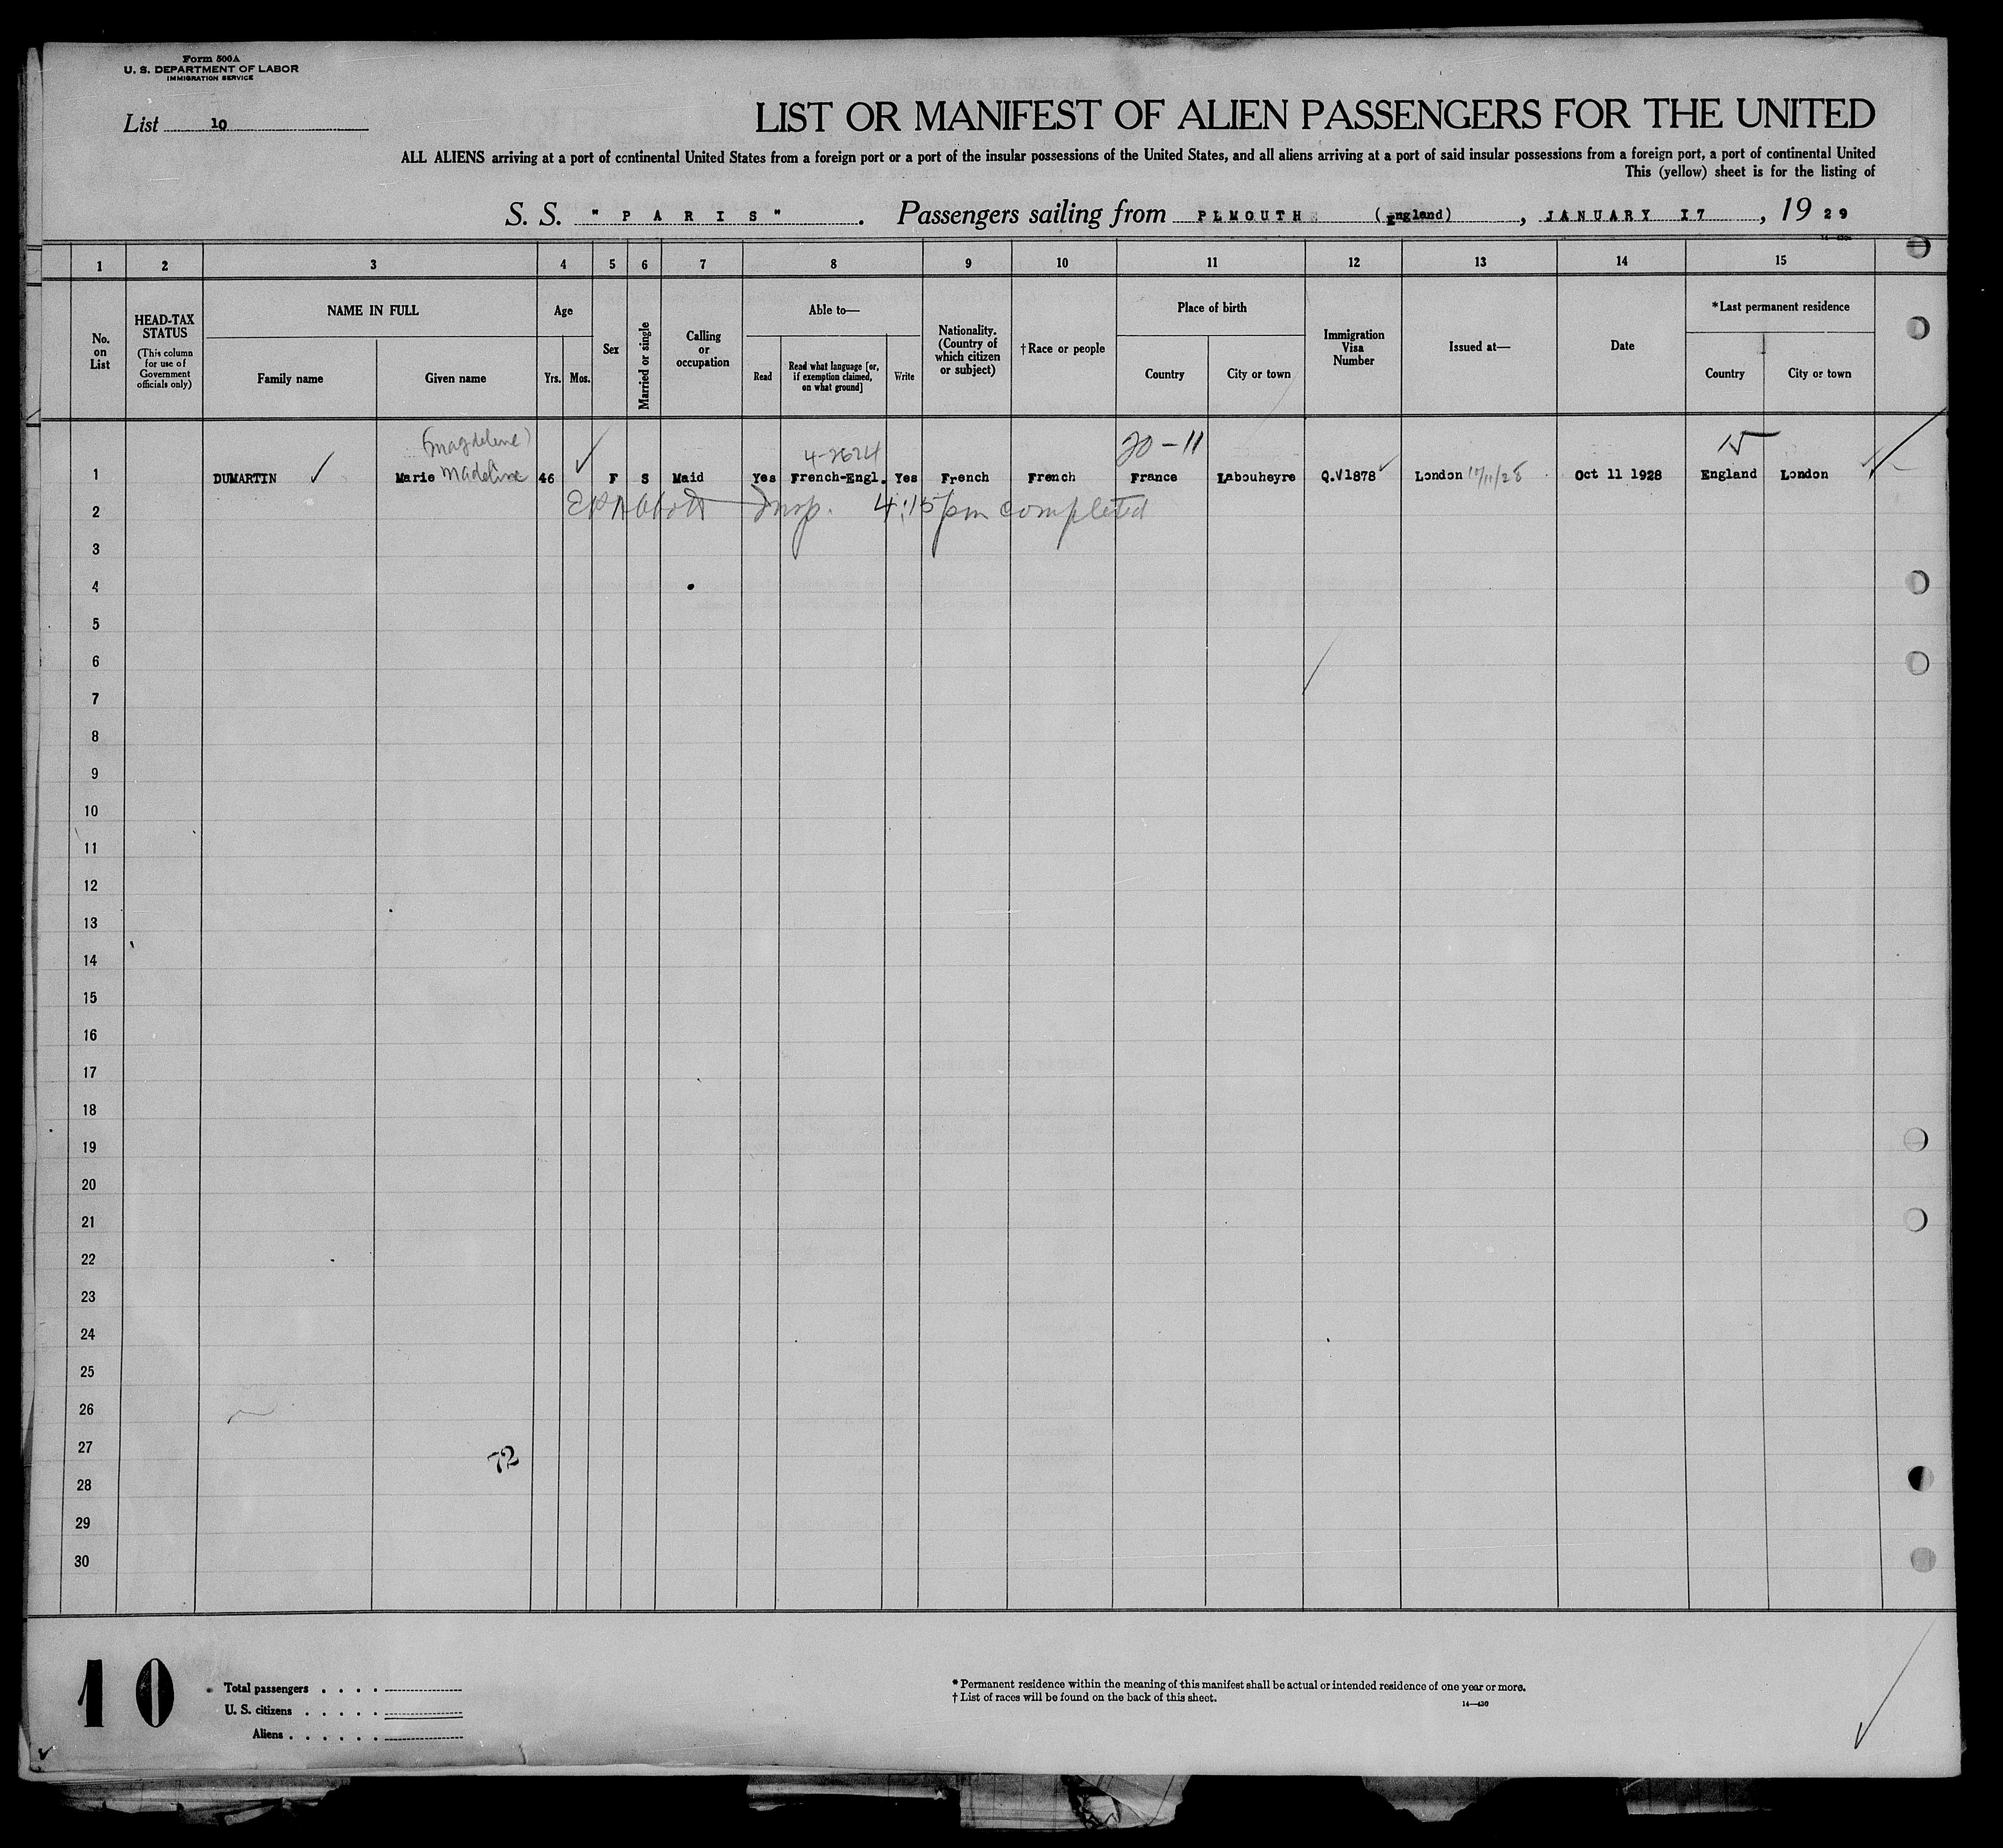 Form 500A
U. S. DEPARTMENT OF LABOR
IMMIGRATION SERVICE
List 10
LIST OR MANIFEST OF ALIEN PASSENGERS FOR THE UNITED
ALL ALIENS arriving at a port of continental United States from a foreign port or a port of the insular possessions of the United States, and all aliens arriving at a port of said insular possessions from a foreign port, a port of continental United
This (yellow) sheet is for the listing of
S. S. " P A R I S " . Passengers sailing from PLMOUTH (England) , JANUARY I7 , 19 29
1 2 3 4 5 6 7 8 9 10 11 12 13 14 15
No. on List
HEAD-TAX STATUS
(This column for use of Government officials only)
NAME IN FULL
Family name
Given name
Age
Yrs.
Mos.
Sex
Married or single
Calling or occupation
Able to—
Read
Read what language [or, if exemption claimed, on what ground]
Write
Nationality. (Country of which citizen or subject)
†Race or people
Place of birth
Country
City or town
Immigration Visa Number
Issued at—
Date
*Last permanent residence
Country
City or town
(Magdeline) 4-2624 20-11 15
1 DUMARTIN Marie Madeline 46 F S Maid Yes French-Engl. Yes French French France Labouheyre Q.V1878 London Oct 11 1928 England London
2 Abbott Insp. 4:15 pm completed
3
4
5
6
7
8
9
10
11
12
13
14
15
16
17
18
19
20
21
22
23
24
25
26
27
72
28
29
30
10
Total passengers . . . .
U. S. citizens . . . . .
Aliens . . . . . .
* Permanent residence within the meaning of this manifest shall be actual or intended residence of one year or more.
† List of races will be found on the back of this sheet.
14—430